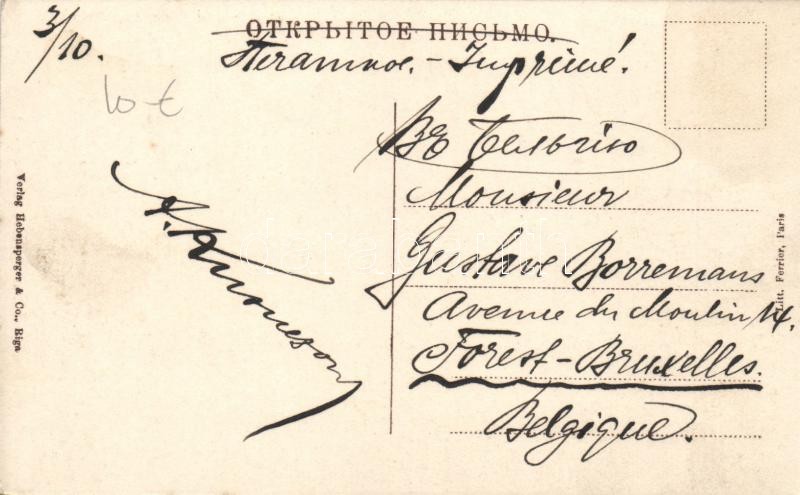 3/10.
ОТКРЫТОЕ ПИСЬМО.
Печатное. - Imprimé.
10 €
Въ Бельгію
Monsieur
Gustave Borremans
Avenue du Moulin 14.
Forest-Bruxelles.
Belgique.
Verlag Hebensperger & Co., Riga
Litt. Ferrier, Paris